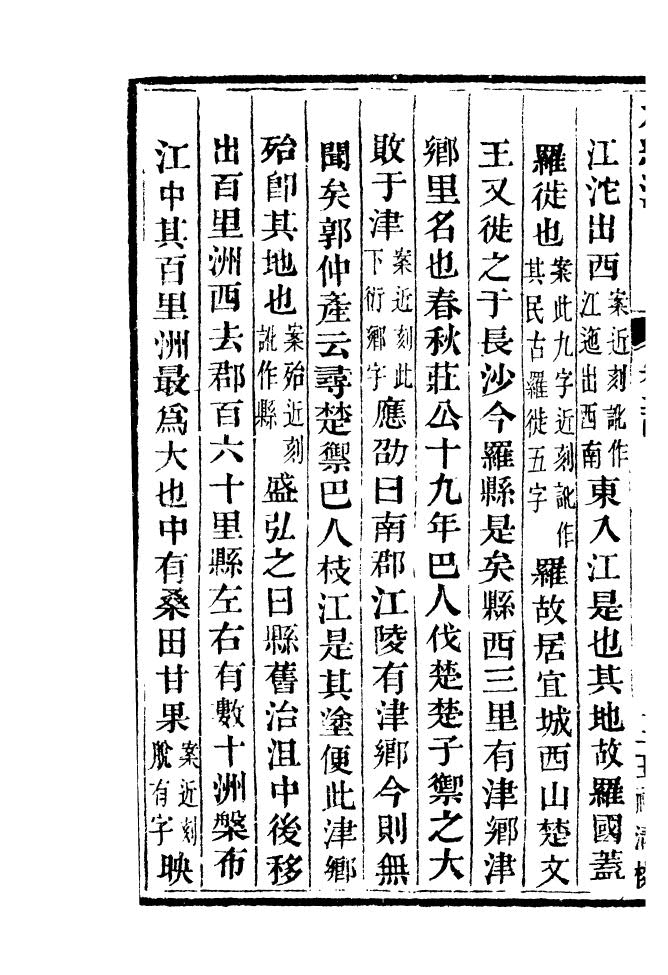 江沱出西案近刻訛作江迤出西南東入江是也其地故羅國蓋
羅徙也案此九字近刻訛作其民古羅徙五字羅故居宜城西山楚文
王又徙之于長沙今羅縣是矣縣西三里有津鄉津
鄉里名也春秋莊公十九年巴人伐楚楚子禦之大
敗于津案近刻此下衍鄉字應劭曰南郡江陵有津鄉今則無
聞矣郭仲產云尋楚禦巴人枝江是其塗便此津鄉
殆卽其地也案殆近刻訛作縣盛弘之曰縣舊治沮中後移
出百里洲西去郡百六十里縣左右有數十洲槃布
江中其百里洲最爲大也中有桑田甘果案近刻脫有字映